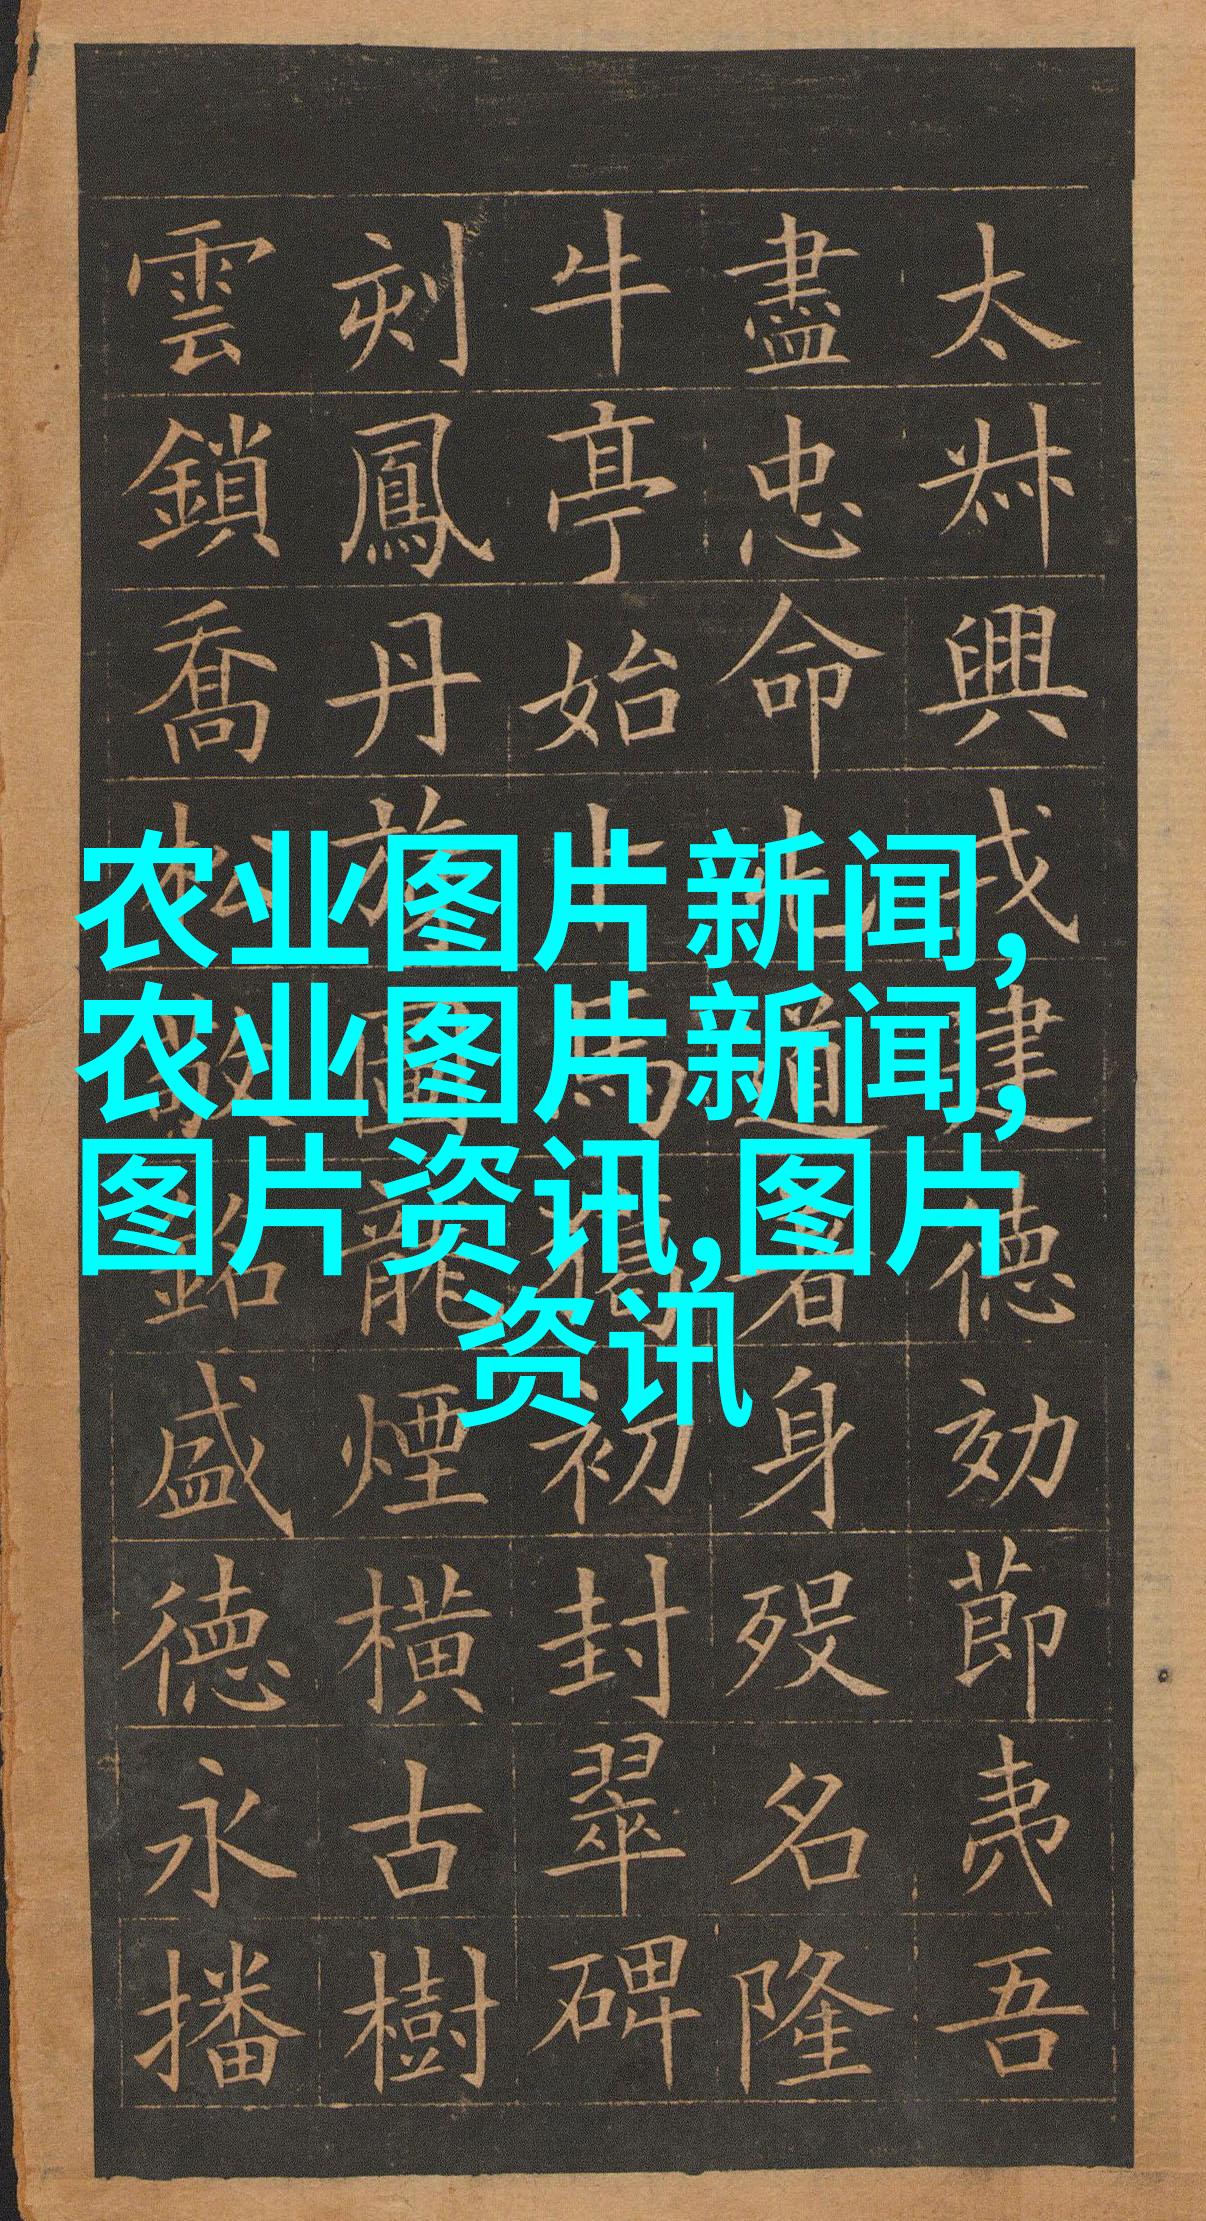 太興建德効節夷吾
盡忠命道者身歿名隆
牛亭始卜馬初封翠碑
刻鳳丹圖龍煙橫古樹
雲鎖喬松敬銘盛德永播
农业图片新闻,
农业图片新闻,
图片资讯,图片
资讯